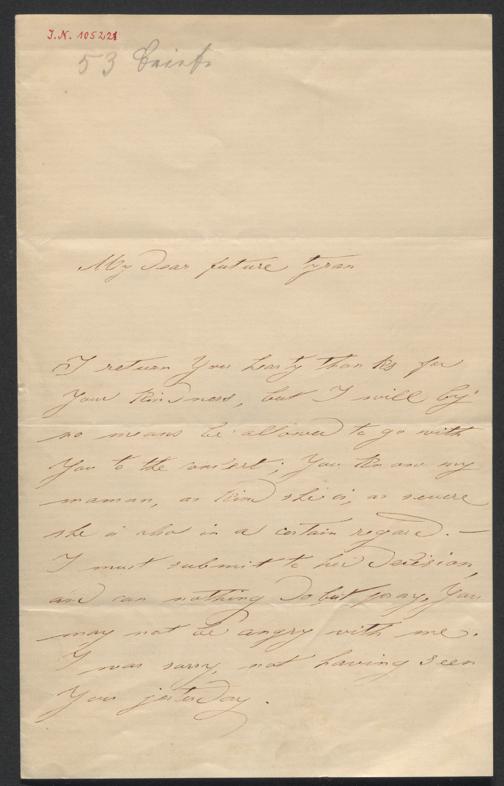 J.N. 105221
53 Briefe
My dear future tyran
I return You hearty thanks for
Your kindness, but I will by
no means be allowed to go with
You to the concert; You know my
maman, as kind she is, as severe
she is also in a certain regard. –
I must submit to her decision
and can nothing do but pray, You
may not be angry with me.
I was sorry, not having seen
You jesterday.